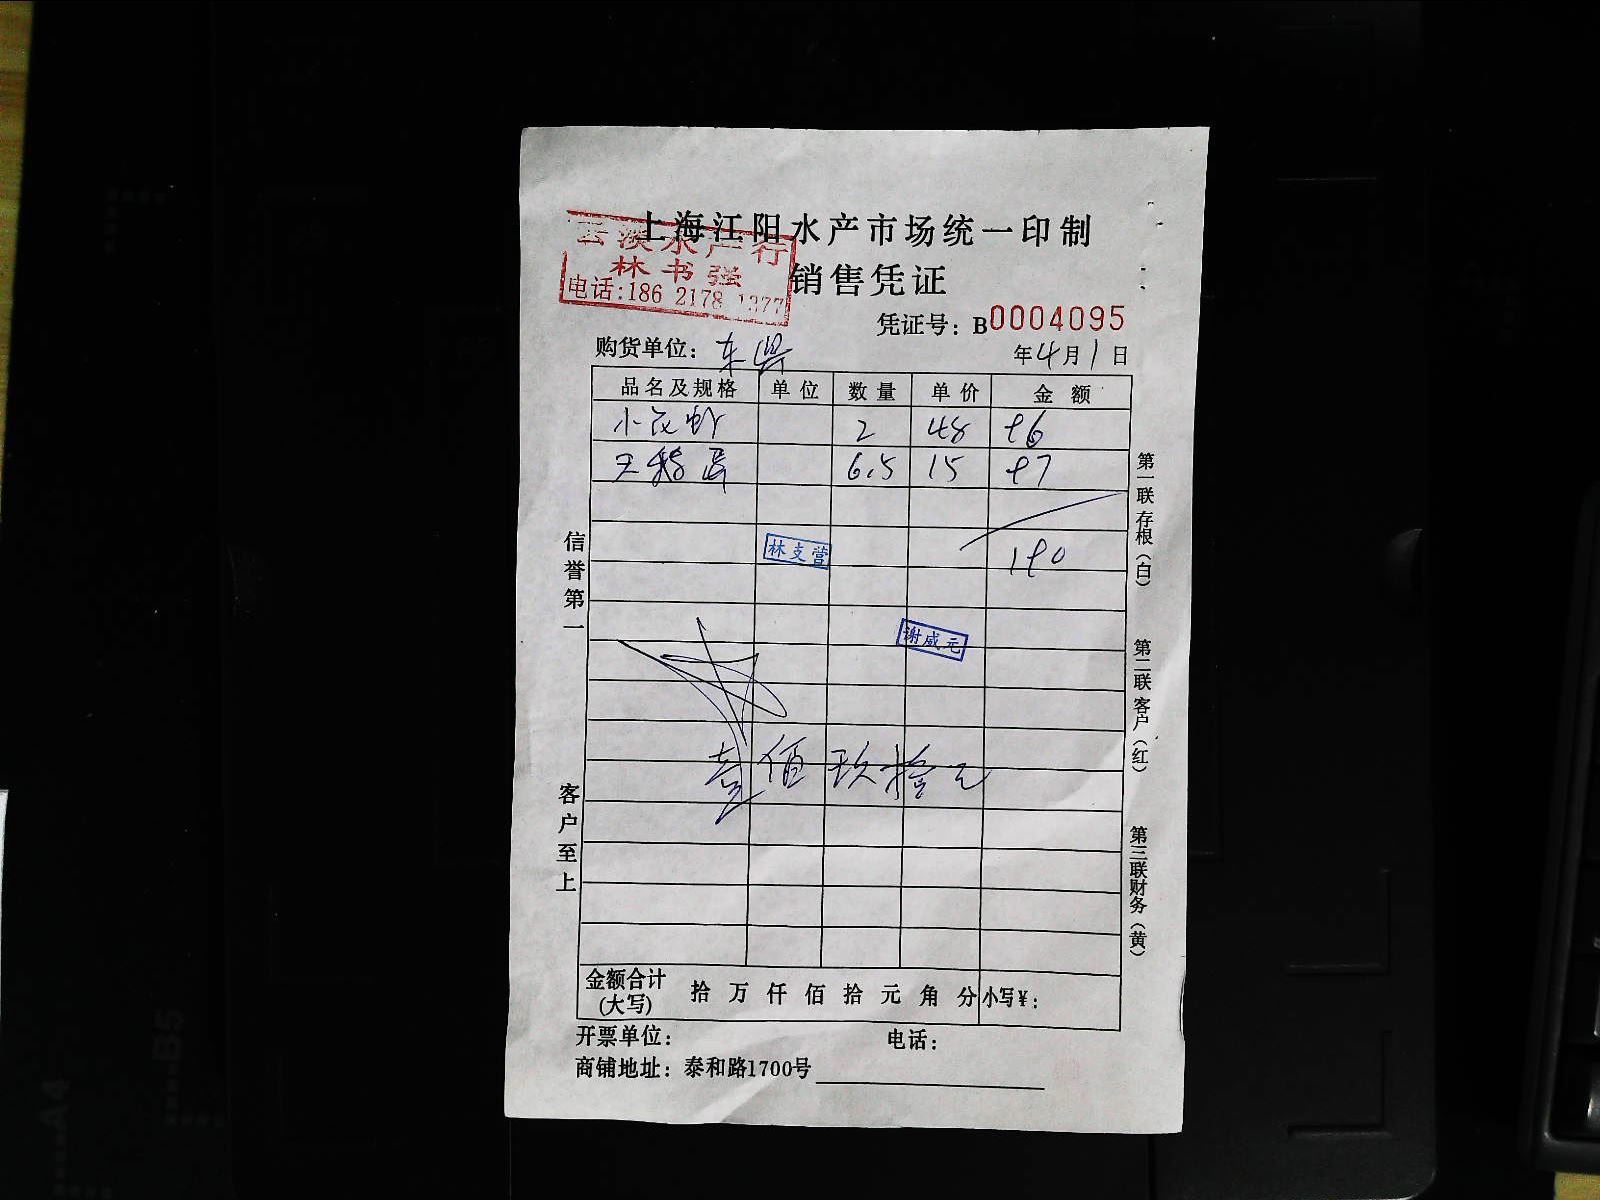 上海江阳水产市场统一印制
云淡水产行
林书强
电话:186 2178 1377
销售凭证
凭证号: B0004095
购货单位: 东
年4月1日
品名及规格 单位 数量 单价 金额
小 虾 2 48 96
6.5 15 97
190
林支营
谢威元
壹佰玖拾元
信誉第一
客户至上
第一联存根(白)
第二联客户(红)
第三联财务(黄)
金额合计(大写) 拾 万 仟 佰 拾 元 角 分 小写¥:
开票单位: 电话:
商铺地址: 泰和路1700号